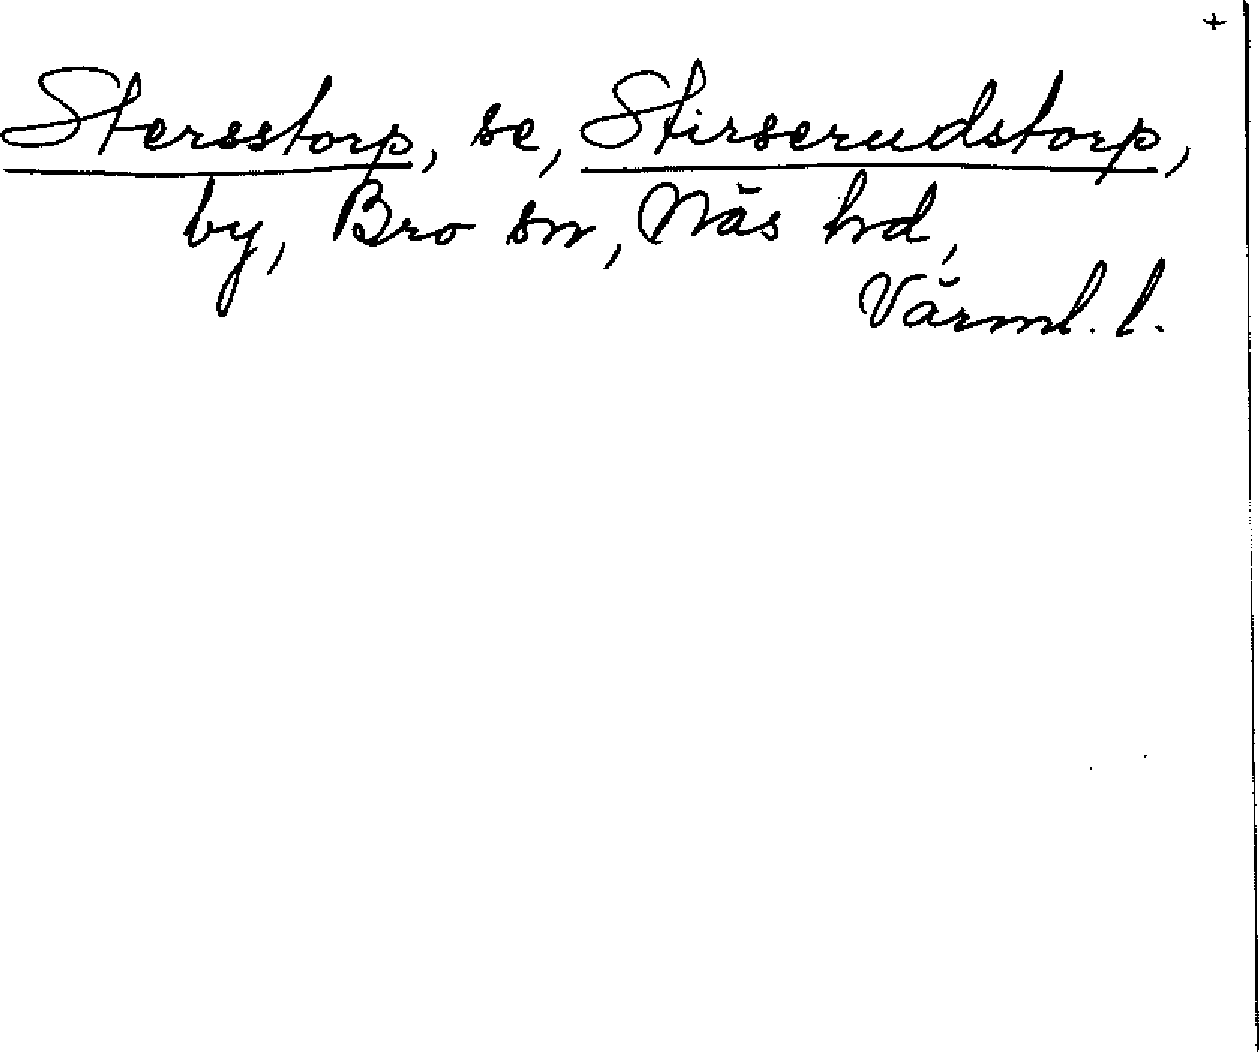 +
Stersstorp, se, Stirserudstorp,
by, Bro sn, Näs hd,
Värml. l.